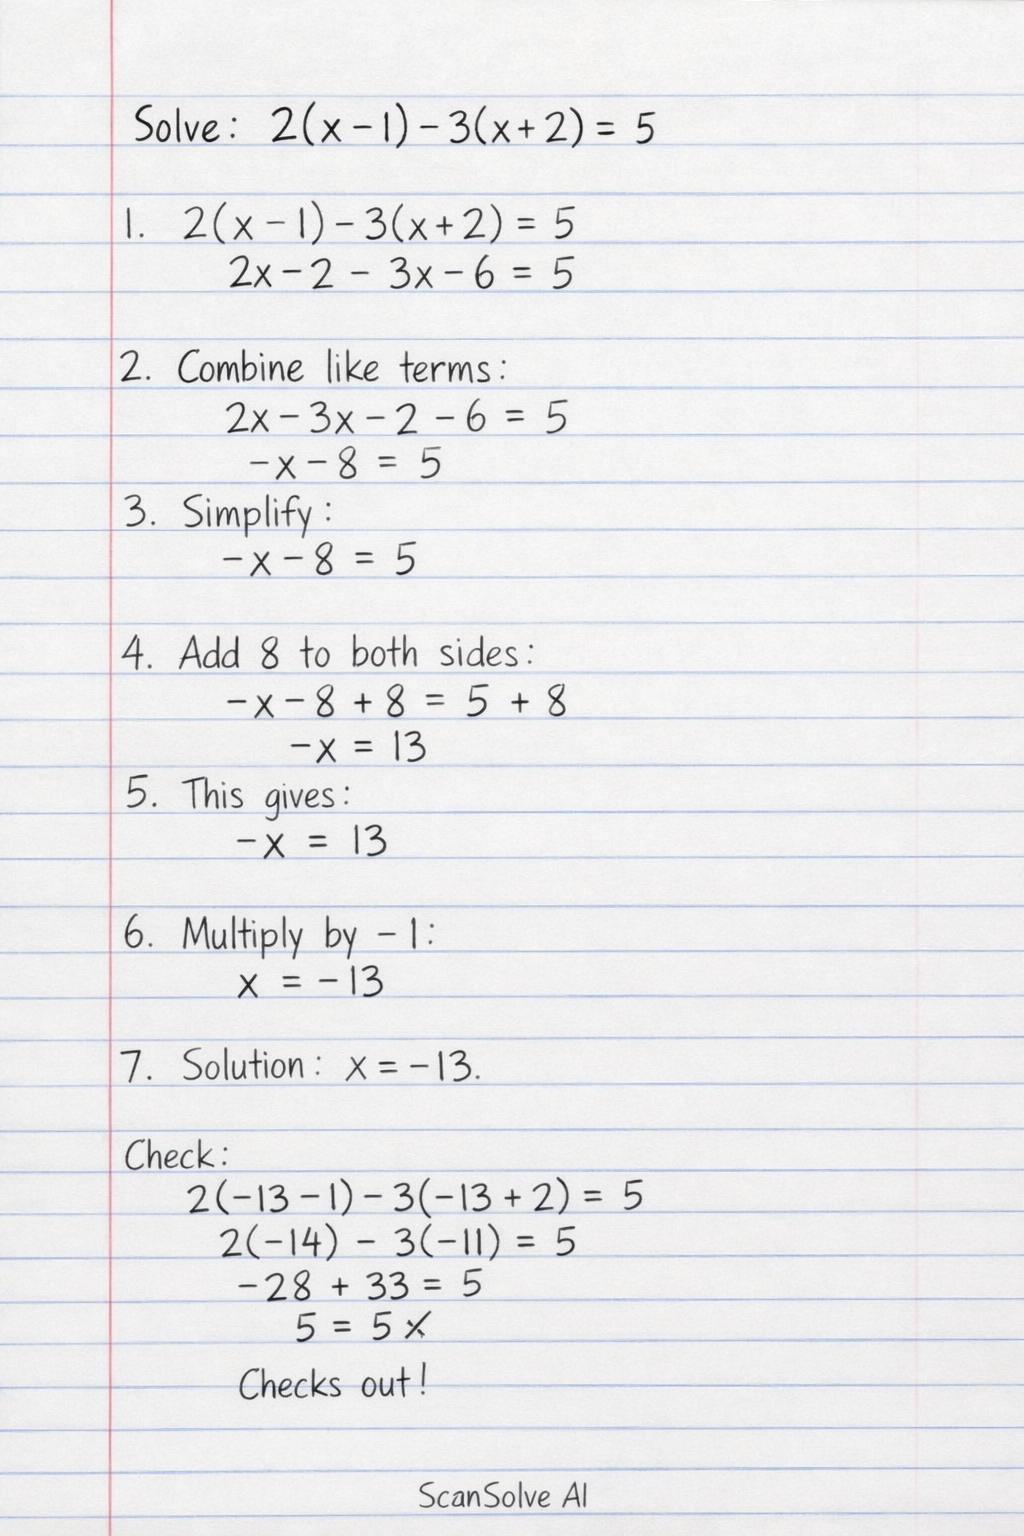 Solve: 2(x-1)-3(x+2) = 5
1. 2(x-1)-3(x+2) = 5
2x-2 - 3x-6 = 5
2. Combine like terms:
2x-3x-2-6 = 5
-x-8 = 5
3. Simplify:
-x-8 = 5
4. Add 8 to both sides:
-x-8+8 = 5+8
-x = 13
5. This gives:
-x = 13
6. Multiply by -1:
x = -13
7. Solution: x = -13.
Check:
2(-13-1)-3(-13+2) = 5
2(-14) - 3(-11) = 5
-28 + 33 = 5
5 = 5 ✗
Checks out!
ScanSolve AI